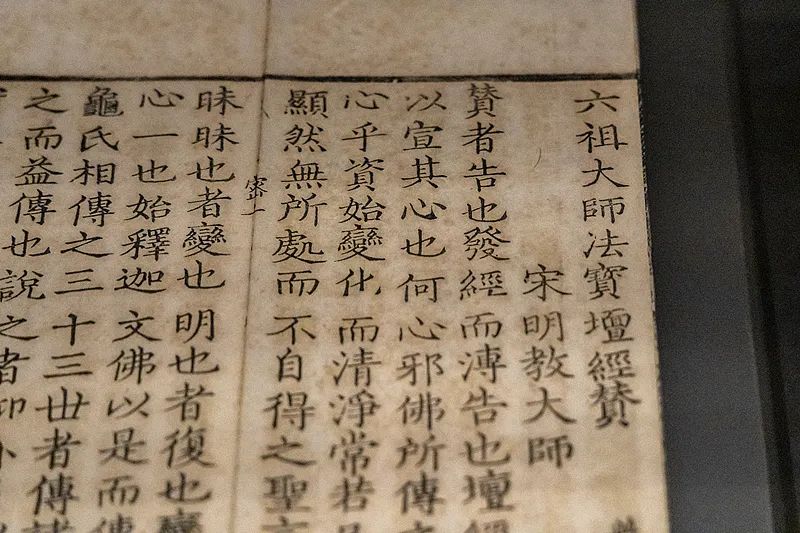 六祖大師法寶壇經贊
宋明教大師
贊者告也發經而溥告也壇經
以宣其心也何心邪佛所傳
心乎資始變化而清淨常若
顯然無所處而不自得之聖
密一
昧昧也者變也明也者復也變
心一也始釋迦文佛以是而傳
龜氏相傳之三十三世者傳諸
之而益傳也說之者抑